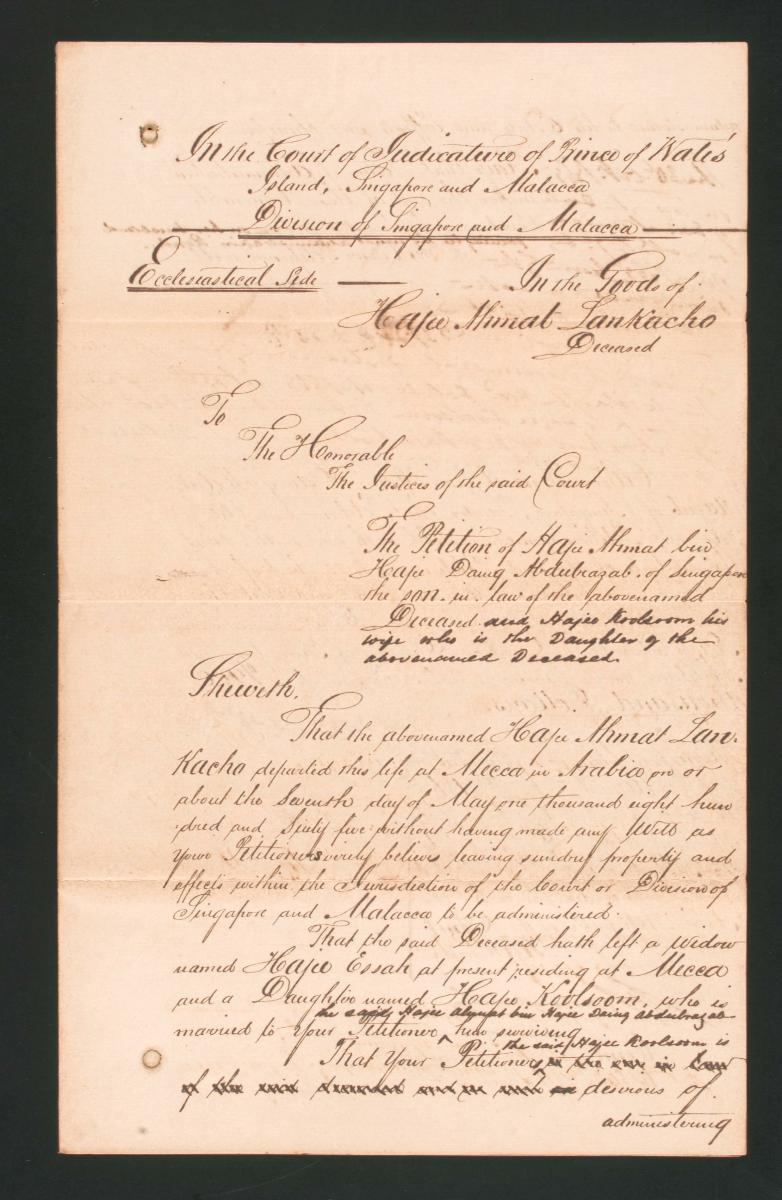 In the Court of Judicature of Prince of Wales'
Island, Singapore and Malacca
Division of Singapore and Malacca
Ecclesiastical Side
In the Goods of
Hajee Ahmat Lankacho
Deceased
To
The Honorable
The Justices of the said Court
The Petition of Hajee Ahmat bin
Hajee Daing Abdulrazab of Singapore
the son-in-law of the abovenamed
Deceased and Hajee Koolsoom his
wife who is the Daughter of the
abovenamed Deceased.
Sheweth,
That the abovenamed Hajee Ahmat Lan-
Kacho departed this life at Mecca in Arabia on or
about the Seventh day of May one thousand eight hun
dred and Sixty five without having made any Will as
your Petitioners verily believes leaving sundry property and
effects within the Jurisdiction of the Court or Division of
Singapore and Malacca to be administered.
That the said Deceased hath left a widow
named Hajee Essah at present residing at Mecca
and a Daughter named Hajee Koolsoom, who is
the said Hajee Ahmat bin Hajee Daing Abdulrazab
married to Your Petitioner him surviving
the said Hajee Koolsoom is
That Your Petitioners as the son in Law
of the said deceased and as such is desirous of
administering